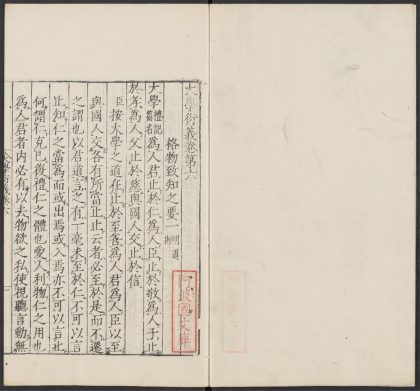 大學衍義卷第六
格物致知之要一 明道術
大學禮記篇名為人君止於仁為人臣止於敬為人子止
於孝為人父止於慈與國人交止於信
臣按大學之道在止於至善為人君為人臣以至
與國人交各有所當止止云者必至於是而不遷
之謂也以君道言之有一毫未至於仁不可以言
止知仁之當為而或出焉或入焉亦不可以言止
何謂仁克己復禮仁之體也愛人利物仁之用也
為人君者內必有以去物欲之私使視聽言動無
阿波國文庫